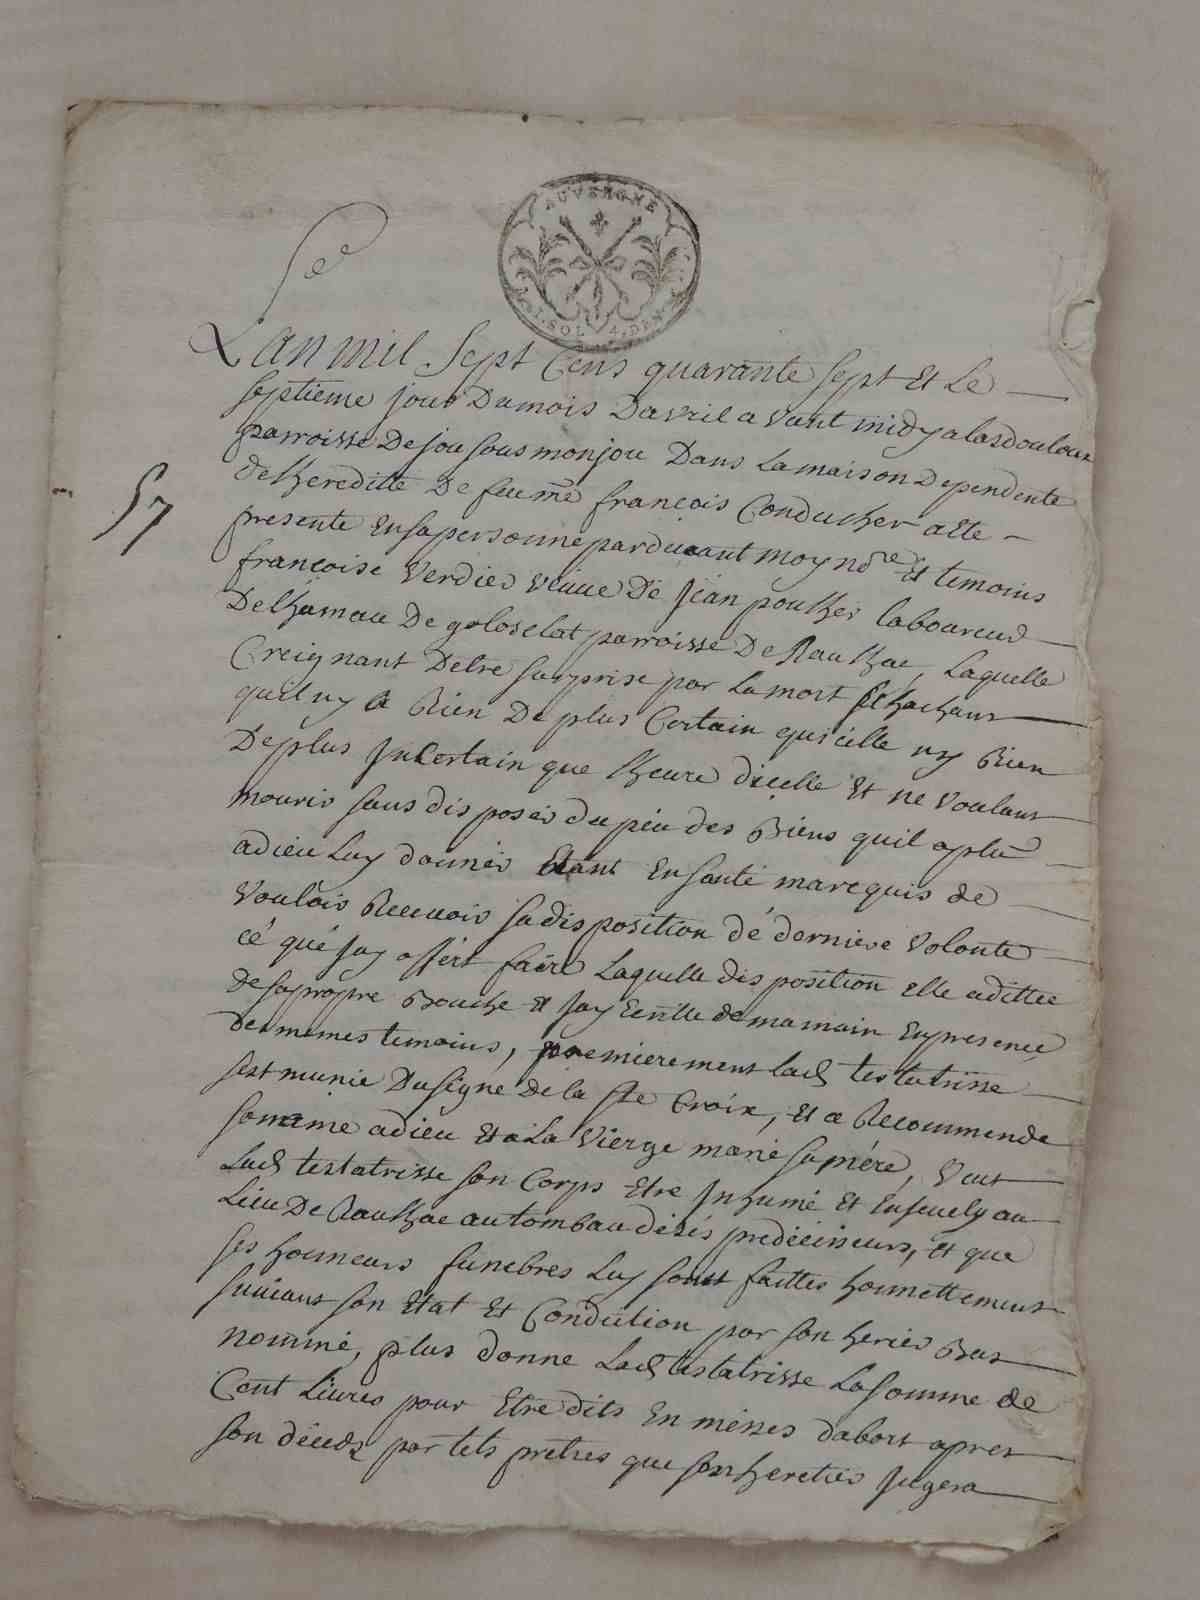 AUVERGNE
SOL 4. DEN
57
L'an mil sept cens quarante sept et le
septieme jour du mois d'avril avant midy
parroisse de jou sous monjou dans la maison dependente
de heredité de feu me françois Conducher a été
presente en sa personne pardevant moy nore et temoins
françoise verdier veuve de jean pouther laboureur
parroisse de Rauhac, laquelle
Creignant detre surprise par la mort sachant
quil ny a Rien de plus Certain quicelle ny Rien
de plus jncertain que lheure dicelle et ne voulant
mourir sans disposer du peu des Biens quil a plu
a dieu luy donner étant en santé ma requis de
vouloir Recevoir sa disposition de derniere volonte
ce que jay offert faire laquelle disposition elle a dittée
de sa propre Bouche et jay ecritte de ma main en presence
des memes temoins, premierement lad testatrisse
sest munie du signe de la ste Croix, et a Recommende
son ame a dieu et a la vierge marie sa mere, veut
lad testatrisse son Corps etre jnhumé et ensevely au
lieu de Rauhac au tombau de ses predecesseurs, et que
ses honneurs funebres luy sont faittes honnettement
suivant son etat et Condition par son herier Bas
nommé, plus donne lad testatrisse la somme de
Cent livres pour etre dits en messes dabort apres
son décéds par tels pretres que son heretier jugera